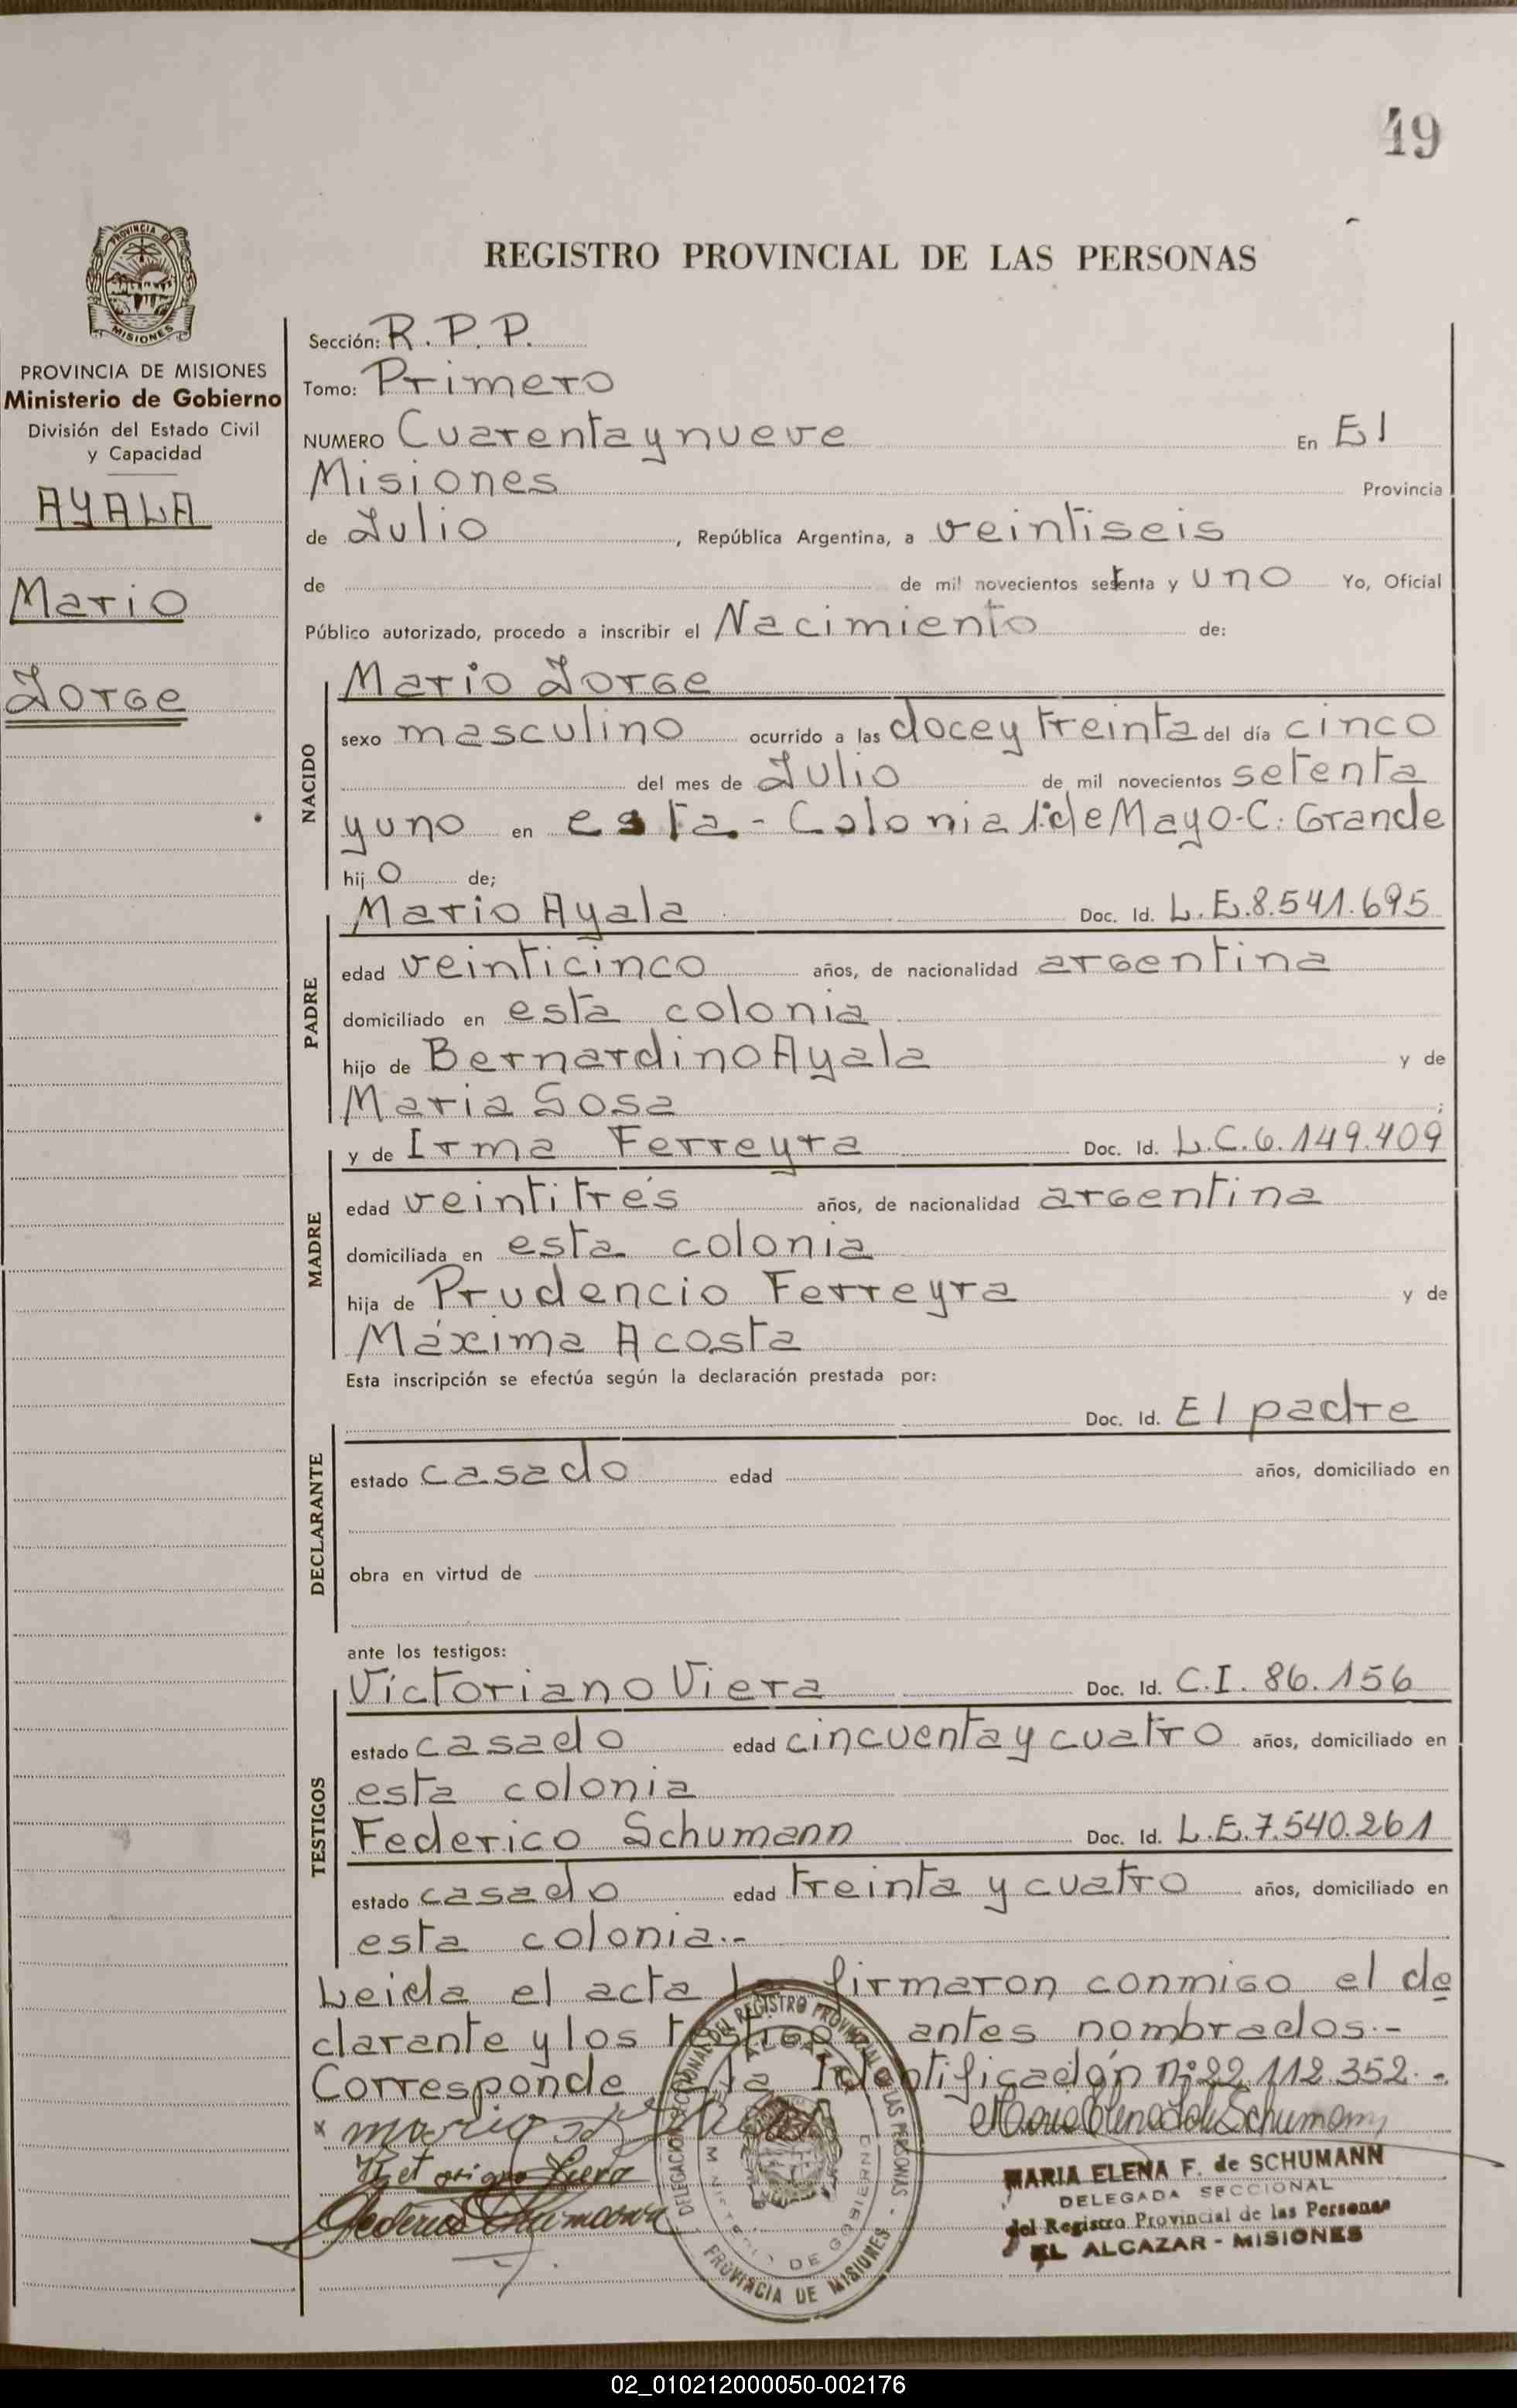 49
REGISTRO PROVINCIAL DE LAS PERSONAS
PROVINCIA DE MISIONES
Ministerio de Gobierno
División del Estado Civil
y Capacidad
AYALA
Mario
Jorge
Sección: R.P.P.
Tomo: Primero
NUMERO Cuarenta y nueve En El
Misiones Provincia
de Julio, República Argentina, a veintiseis
de de mil novecientos setenta y uno Yo, Oficial
Público autorizado, procedo a inscribir el Nacimiento de:
NACIDO
Mario Jorge
sexo masculino ocurrido a las doce y treinta del día cinco
del mes de Julio de mil novecientos setenta
y uno en esta - Colonia 1º de Mayo - C. Grande
hijo de;
PADRE
Mario Ayala Doc. Id. L.E. 8.541.695
edad veinticinco años, de nacionalidad argentina
domiciliado en esta colonia
hijo de Bernardino Ayala y de
Maria Sosa;
MADRE
y de Irma Ferreyra Doc. Id. L.C. 6.149.409
edad veintitrés años, de nacionalidad argentina
domiciliada en esta colonia
hija de Prudencio Ferreyra y de
Máxima Acosta
Esta inscripción se efectúa según la declaración prestada por:
DECLARANTE
Doc. Id. El padre
estado casado edad años, domiciliado en
obra en virtud de
ante los testigos:
TESTIGOS
Victoriano Viera Doc. Id. C.I. 86.156
estado casado edad cincuenta y cuatro años, domiciliado en
esta colonia
Federico Schumann Doc. Id. L.E. 7.540.261
estado casado edad treinta y cuatro años, domiciliado en
esta colonia.-
Leida el acta la firmaron conmigo el de
clarante y los testigos antes nombrados.-
Corresponde a la Identificación nº 22.112.352.-
MARIA ELENA F. de SCHUMANN
DELEGADA SECCIONAL
del Registro Provincial de las Personas
EL ALCAZAR - MISIONES
PROVINCIA DE MISIONES
02_010212000050-002176